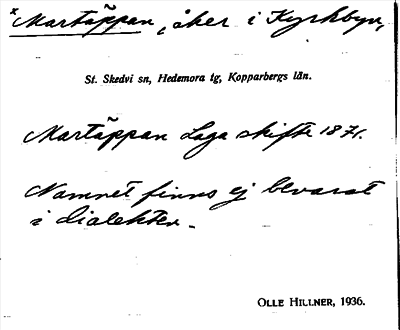 x Martäppan, åker i Kyrkbyn,
St. Skedvi sn, Hedemora tg, Kopparbergs län.
Martäppan Laga skifte 1871.
Namnet finns ej bevarat
i dialekten.
OLLE HILLNER, 1936.